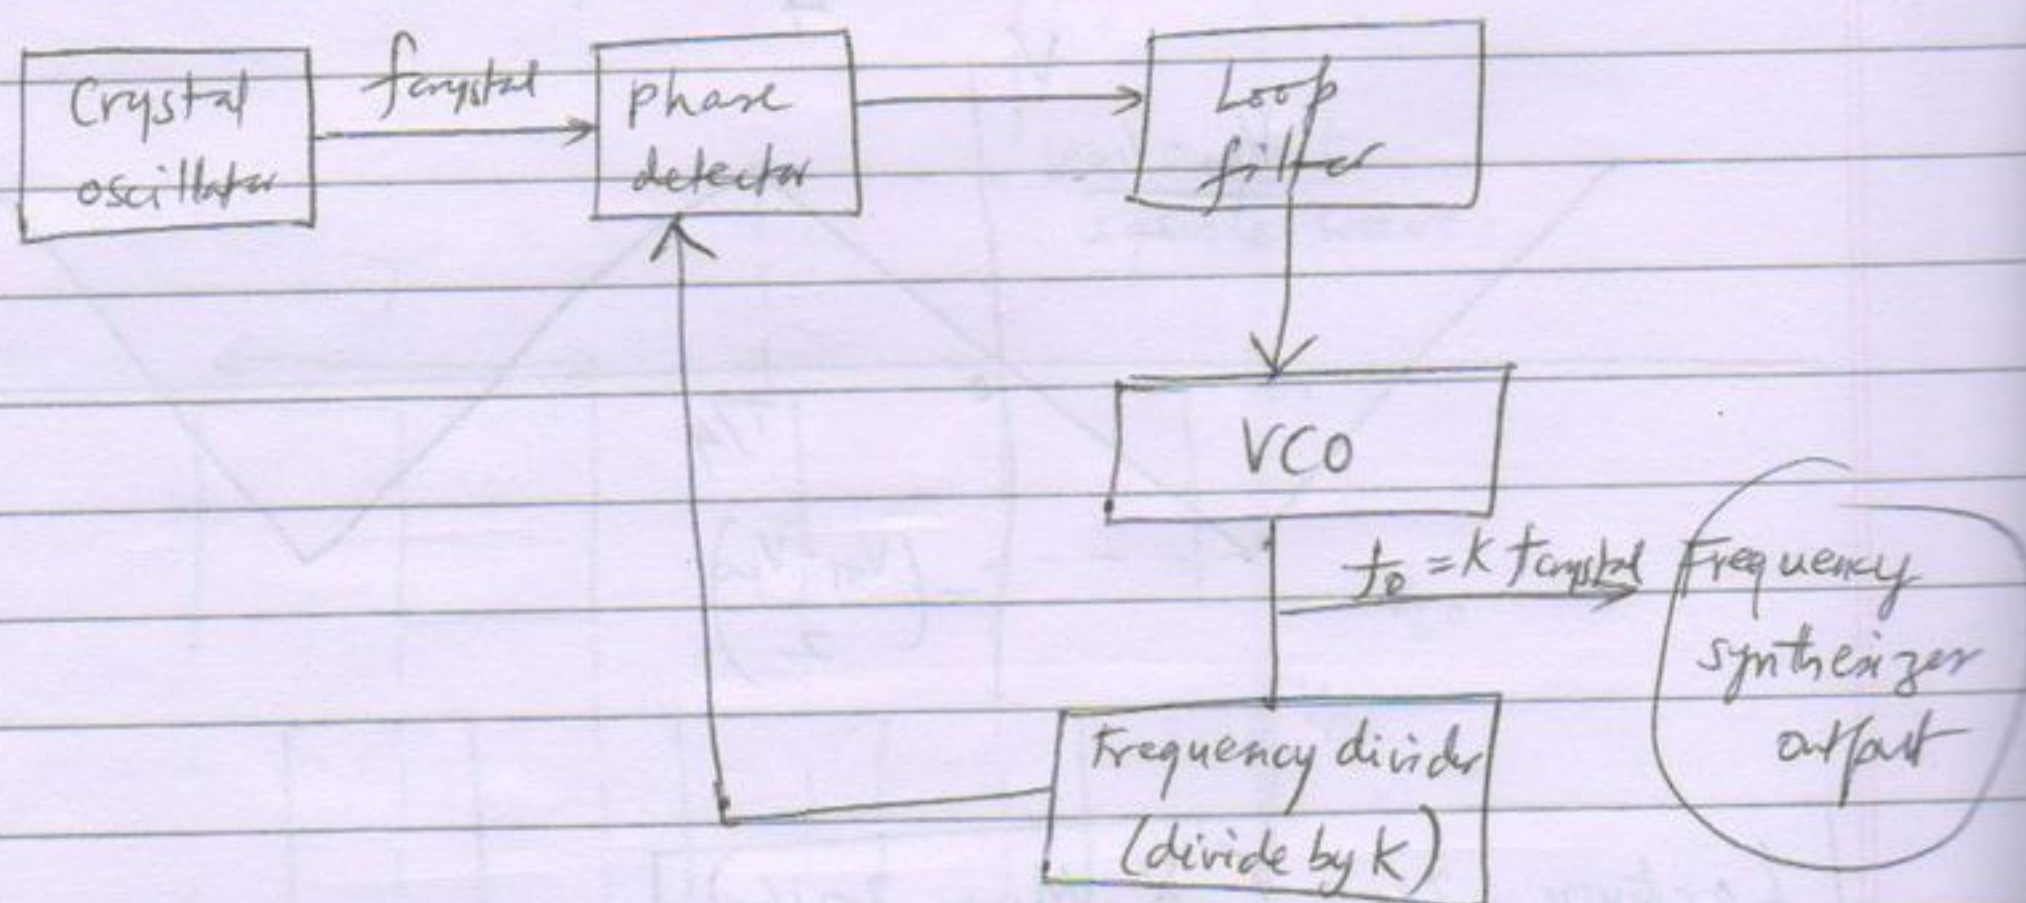 Crystal
oscillator
fcrystal
phase
detector
Loop
filter
VCO
fo = K fcrystal
Frequency
synthesizer
output
Frequency divider
(divide by K)